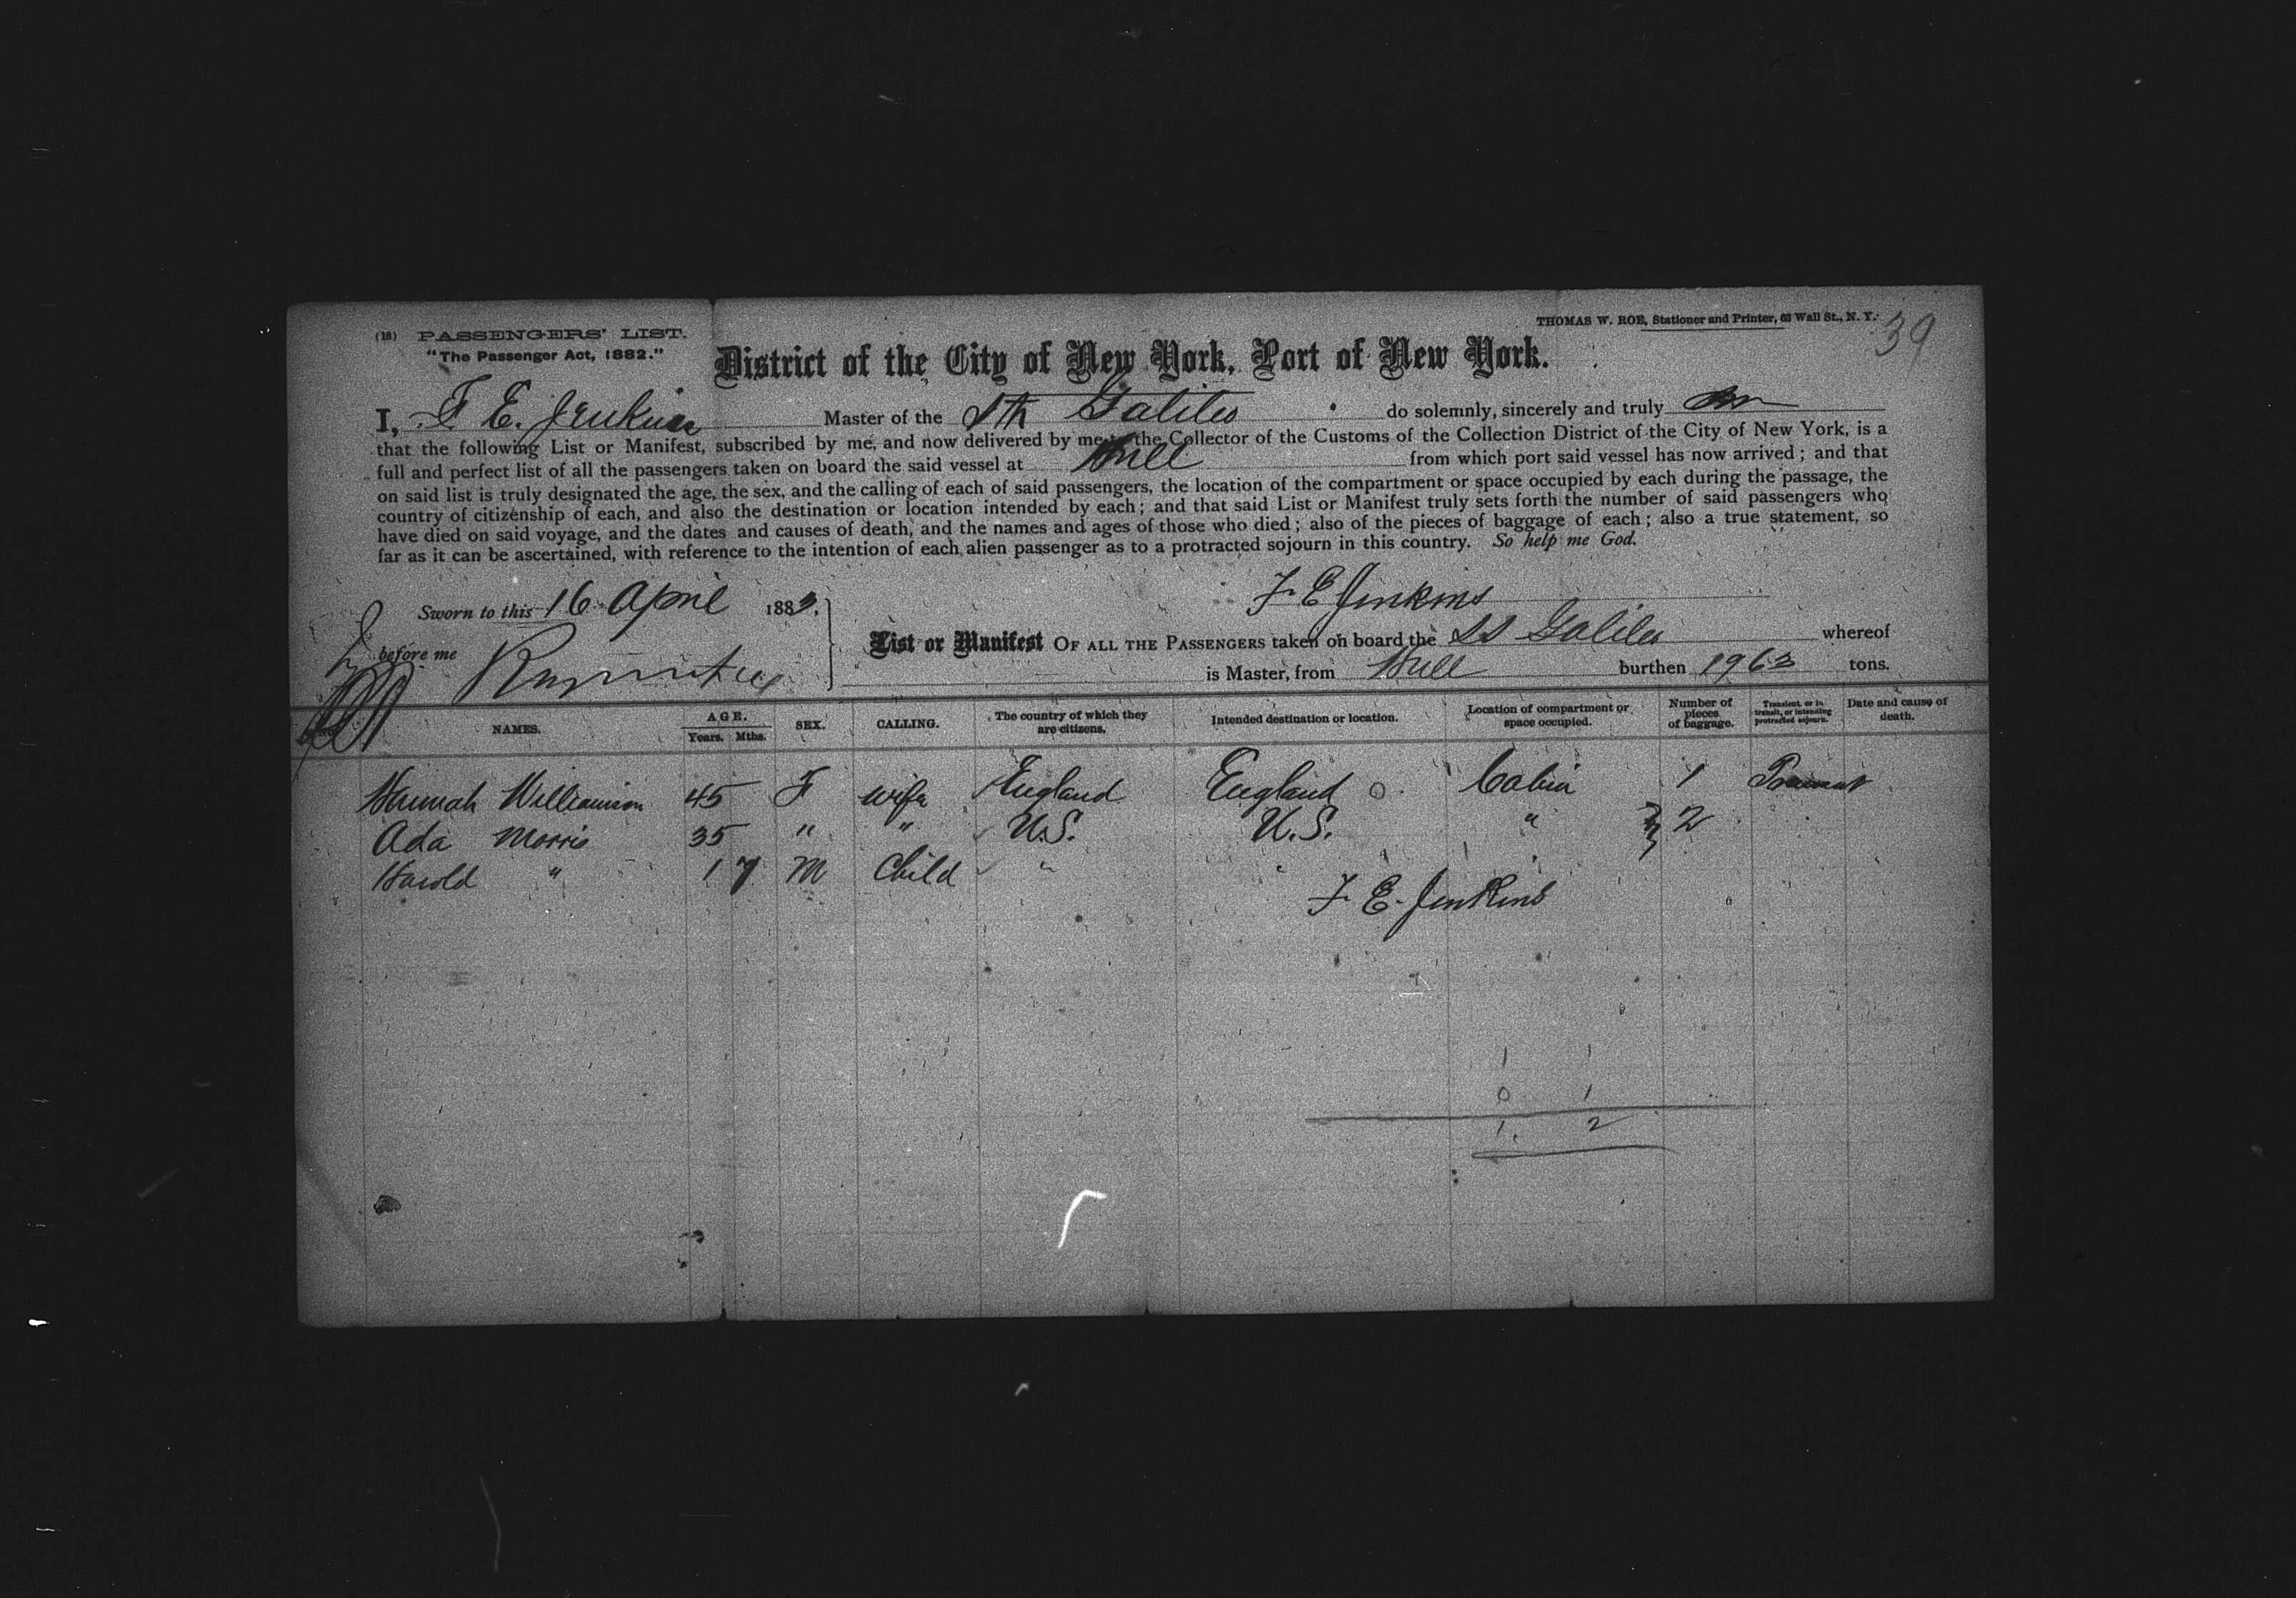 (18) PASSENGERS' LIST.
THOMAS W. ROE, Stationer and Printer, 63 Wall St., N. Y.
39
"The Passenger Act, 1882."
District of the City of New York, Port of New York.
I, F E. Jenkins Master of the Str Galileo do solemnly, sincerely and truly
that the following List or Manifest, subscribed by me, and now delivered by me to the Collector of the Customs of the Collection District of the City of New York, is a
full and perfect list of all the passengers taken on board the said vessel at Hull from which port said vessel has now arrived; and that
on said list is truly designated the age, the sex, and the calling of each of said passengers, the location of the compartment or space occupied by each during the passage, the
country of citizenship of each, and also the destination or location intended by each; and that said List or Manifest truly sets forth the number of said passengers who
have died on said voyage, and the dates and causes of death, and the names and ages of those who died; also of the pieces of baggage of each; also a true statement, so
far as it can be ascertained, with reference to the intention of each alien passenger as to a protracted sojourn in this country. So help me God.
Sworn to this 16 April 1883.
F. E Jenkins
before me
List or Manifest OF ALL THE PASSENGERS taken on board the SS Galileo whereof
is Master, from Hull burthen 1963 tons.
NAMES. AGE. Years. Mths. SEX. CALLING. The country of which they are citizens. Intended destination or location. Location of compartment or space occupied. Number of pieces of baggage. Transient, or in transit, or intending protracted sojourn. Date and cause of death.
Hannah Williamson 45 F wife England England Cabin 1
Ada Morris 35 " " U.S. U.S. " 2
Harold " 1 7 M Child " "
F. E. Jenkins
1 1
0 1
1. 2